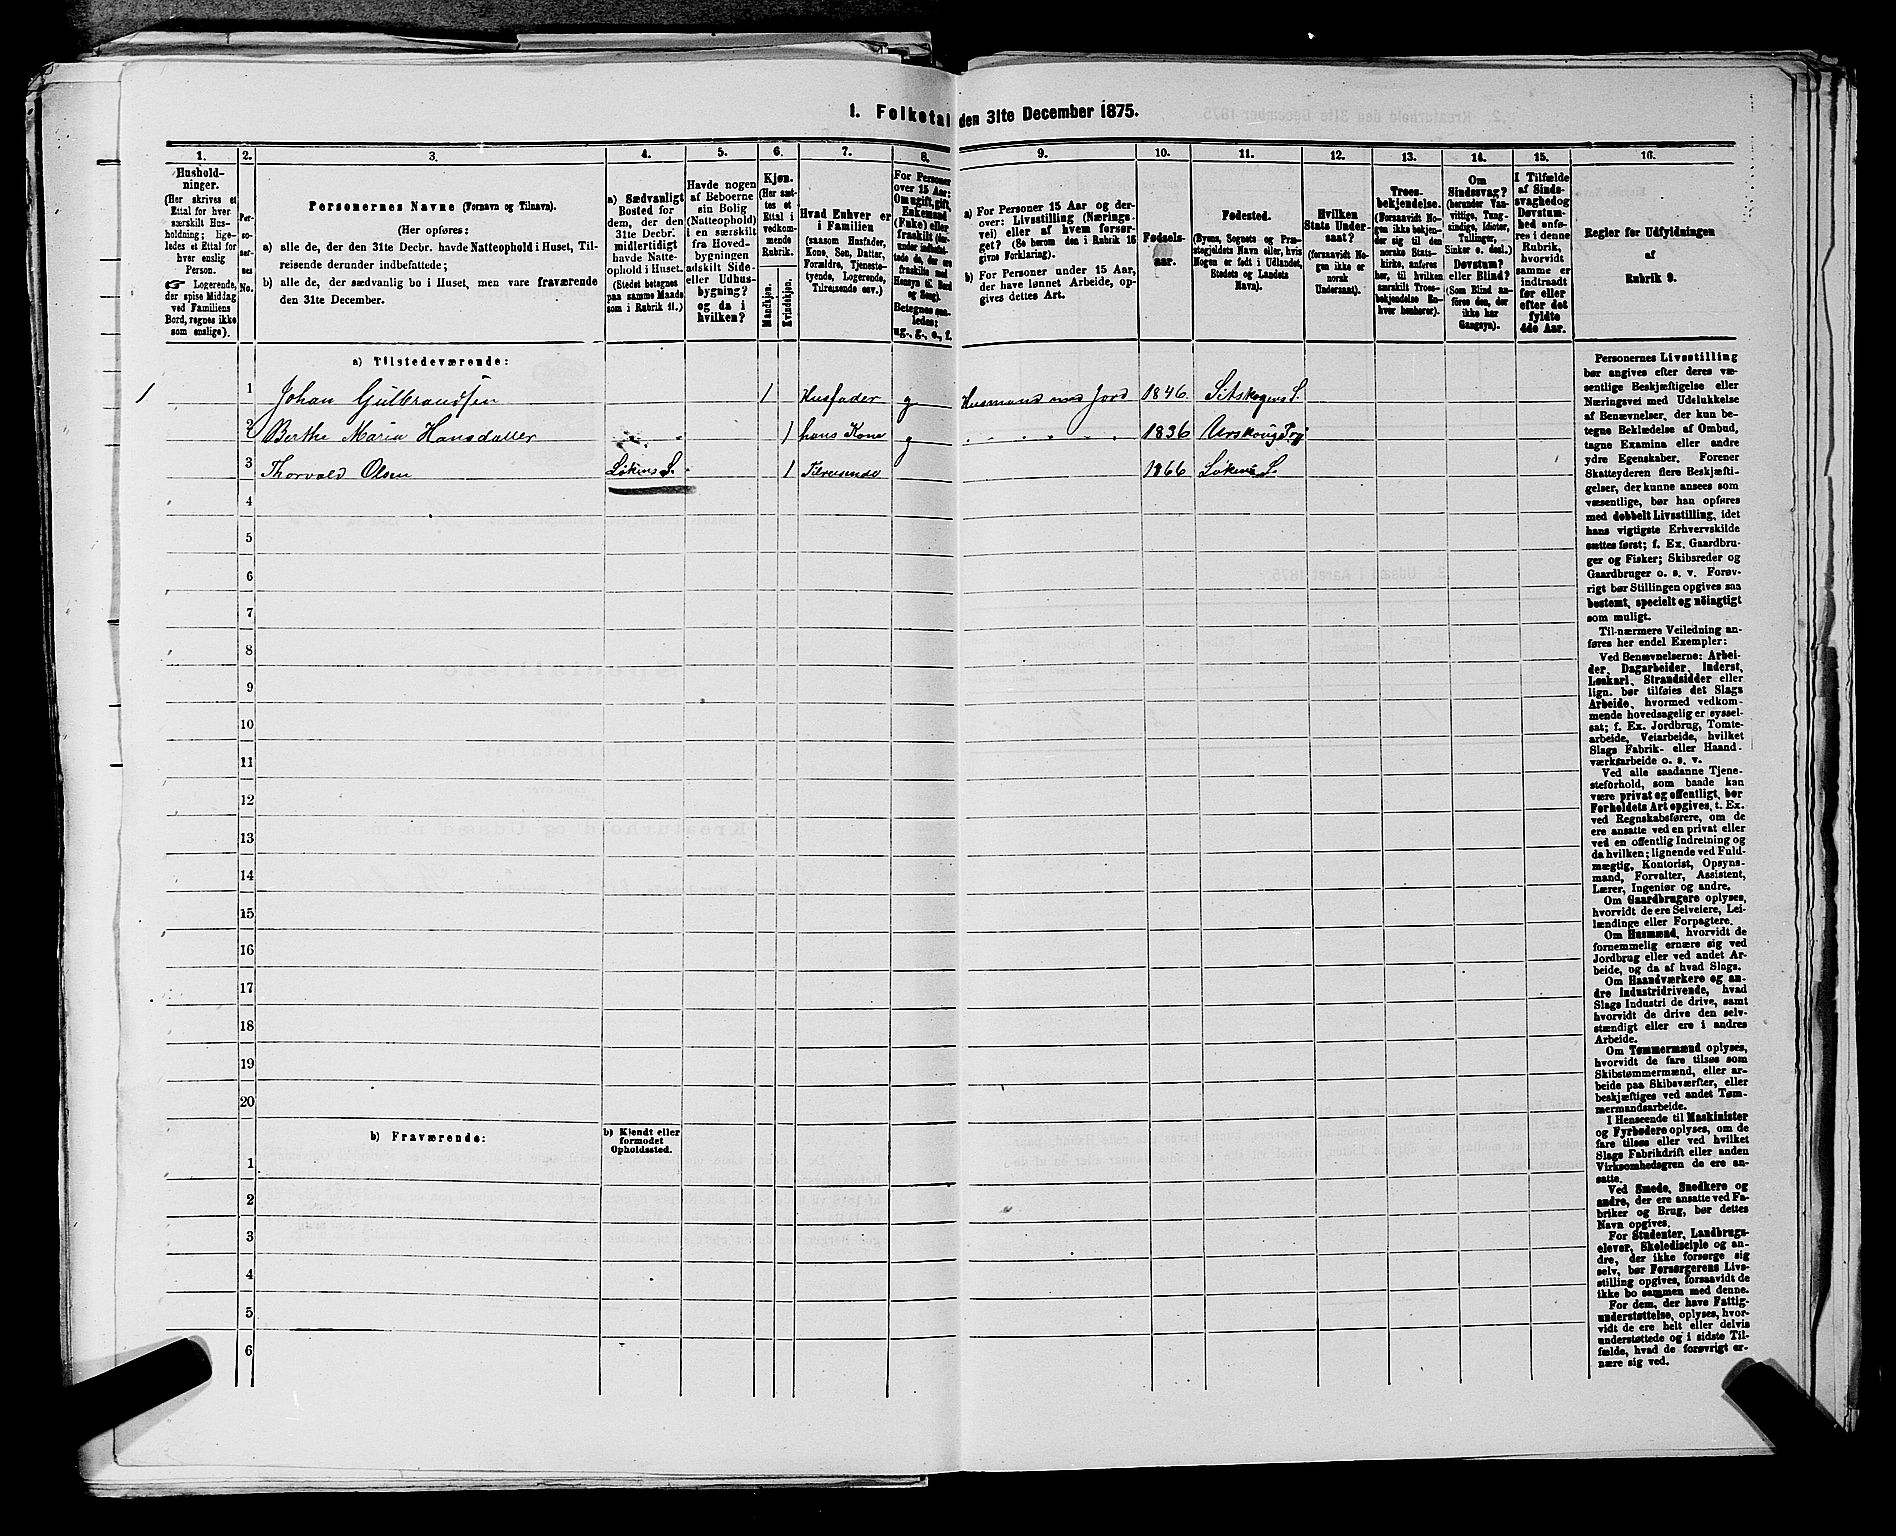 1. Folketal den 31te December 1875.
1. 2. 3. 4. 5. 6. 7. 8. 9. 10. 11. 12. 13. 14. 15. 16.
Hushold-
ninger.
(Her skrives et
Ettal for hver
særskilt Hus-
holdning; lige-
ledes et Ettal for
hver enslig
Person.
☞ Logerende,
der spise Middag
ved Familiens
Bord, regnes ikke
som enslige).
Per-
so-
ner-
nes
No.
Personernes Navne (Fornavn og Tilnavn).
(Her opføres:
a) alle de, der den 31te Decbr. havde Natteophold i Huset, Til-
reisende derunder indbefattede;
b) alle de, der sædvanlig bo i Huset, men vare fraværende
den 31te December.
a) Sædvanligt
Bosted for
dem, der den
31te Decbr.
midlertidigt
havde Natte-
ophold i Huset.
(Stedet betegnes
paa samme Maade
som i Rubrik 11.)
Havde nogen
af Beboerne
sin Bolig
(Natteophold)
i en særskilt
fra Hoved-
bygningen
adskilt Side-
eller Udhus-
bygning?
og da i
hvilken?
Kjøn.
(Her sæt-
tes et
Ettal i
vedkom-
mende
Rubrik.
Mandkjøn.
Kvindekjøn.
Hvad Enhver er
i Familien
(saasom Husfader,
Kone, Søn, Datter,
Forældre, Tjeneste-
tyende, Logerende,
Tilreisende osv.)
For Personer
over 15 Aar:
Om ugift, gift,
Enkemand
(Enke) eller
fraskilt
Betegnes saa-
ledes:
ug., g., e., f.
a) For Personer 15 Aar og der-
over: Livsstilling (Nærings-
vei) eller af hvem forsør-
get? (Se herom den i Rubrik 16
givne Forklaring).
b) For Personer under 15 Aar,
der have lønnet Arbeide, op-
gives dettes Art.
Fødsels-
aar.
Fødested.
(Byens, Sognets og Præ-
stegjeldets Navn eller, hvis
Nogen er født i Udlandet,
Stedets og Landets
Navn).
Hvilken
Stats Under-
saat?
(forsaavidt No-
gen ikke er
norsk
Undersaat).
Troes-
bekjendelse.
(Forsaavidt No-
gen ikke bekjen-
der sig til den
norske Stats-
kirke, anføres
her, til hvilken
særskilt Troes-
bekjendelse En-
hver henhører).
Om
Sindssvag?
(herunder Van-
vittige, Tung-
sindige, Idioter,
Tullinger,
Sinker o. desl.).
Døvstum?
eller Blind?
(Som Blind an-
føres den, der
ikke har
Gangsyn).
I Tilfælde
af Sinds-
svaghed og
Døvstum-
hed anfø-
res i denne
Rubrik,
hvorvidt
samme er
indtraadt
før eller
efter det
fyldte
4de Aar.
Regler for Udfyldningen
af
Rubrik 9.
a) Tilstedeværende:
1 1 Johan Gulbrandsen 1 Husfader g Husmand med Jord 1846 Sitskogens S.
2 Berthe Maria Hansdatter 1 hans Kone g 1836 Urskoug
3 Thorvald Olsen Løkens S. 1 Tilreisende 1866 Løkens S.
4
5
6
7
8
9
10
11
12
13
14
15
16
17
18
19
20
b) Fraværende:
b) Kjendt eller
formodet
Opholdssted.
1
2
3
4
5
6
Personernes Livsstilling
bør angives efter deres væ-
sentlige Beskjæftigelse eller
Næringsvei med Udelukkelse
af Benævnelser, der kun be-
tegne Beklædelse af Ombud,
tagne Examina eller andre
ydre Egenskaber. Forener
Skatteyderen flere Beskjæfti-
gelser, der kunne ansees som
væsentlige, bør han opføres
med dobbelt Livsstilling, idet
hans vigtigste Erhvervskilde
sættes først; f. Ex. Gaardbru-
ger og Fisker; Skibsreder og
Gaardbruger o. s. v. Forøv-
rigt bør Stillingen opgives saa
bestemt, specielt og nøiagtigt
som muligt.
Til nærmere Veiledning an-
føres her endel Exempler:
Ved Benævnelserne: Arbei-
der, Dagarbeider, Inderst,
Løskarl, Strandsidder eller
lign. bør tilføies det Slags
Arbeide, hvormed vedkom-
mende hovedsagelig er syssel-
sat; f. Ex. Jordbrug, Tomte-
arbeide, Veiarbeide, hvilket
Slags Fabrik- eller Haand-
værksarbeide o. s. v.
Ved alle saadanne Tjene-
steforhold, som baade kan
være privat og offentligt, bør
Forholdets Art opgives, t. Ex.
ved Regnskabsførere, om de
ere ansatte ved en privat eller
ved en offentlig Indretning og
da hvilken; lignende ved Fuld-
mægtig, Kontorist, Opsyns-
mand, Forvalter, Assistent,
Lærer, Ingeniør og andre.
Om Gaardbrugere oplyses,
hvorvidt de ere Selveiere, Lei-
lændinge eller Forpagtere.
Om Husmænd, hvorvidt de
fornemmelig ernære sig ved
Jordbrug eller ved andet Ar-
beide, og da af hvad Slags.
Om Haandværkere og an-
dre Industridrivende, hvad
Slags Industri de drive, samt
hvorvidt de drive den selv-
stændigt eller ere i andres
Arbeide.
Om Tømmermænd oplyses,
hvorvidt de fare tilsøs som
Skibstømmermænd, eller ar-
beide paa Skibsværfter, eller
beskjæftiges ved andet Tøm-
mermandsarbeide.
I Henseende til Maskinister
og Fyrbødere oplyses, om de
fare tilsøs eller ved hvilket
Slags Fabrikdrift eller anden
Virksomhedsgren de ere an-
satte.
Ved Smede, Snedkere og
andre, der ere ansatte ved Fa-
briker og Brug, bør dettes
Navn opgives.
For Studenter, Landbrugs-
elever, Skoledisciple og an-
dre, der ikke forsørge sig
selv, bør Forsørgerens Livs-
stilling opgives, forsaavidt de
ikke bo sammen med denne.
For dem, der have Fattig-
understøttelse, oplyses, hvor-
vidt de ere helt eller delvis
understøttede og i sidste Til-
fælde, hvad de forøvrigt er-
nære sig ved.